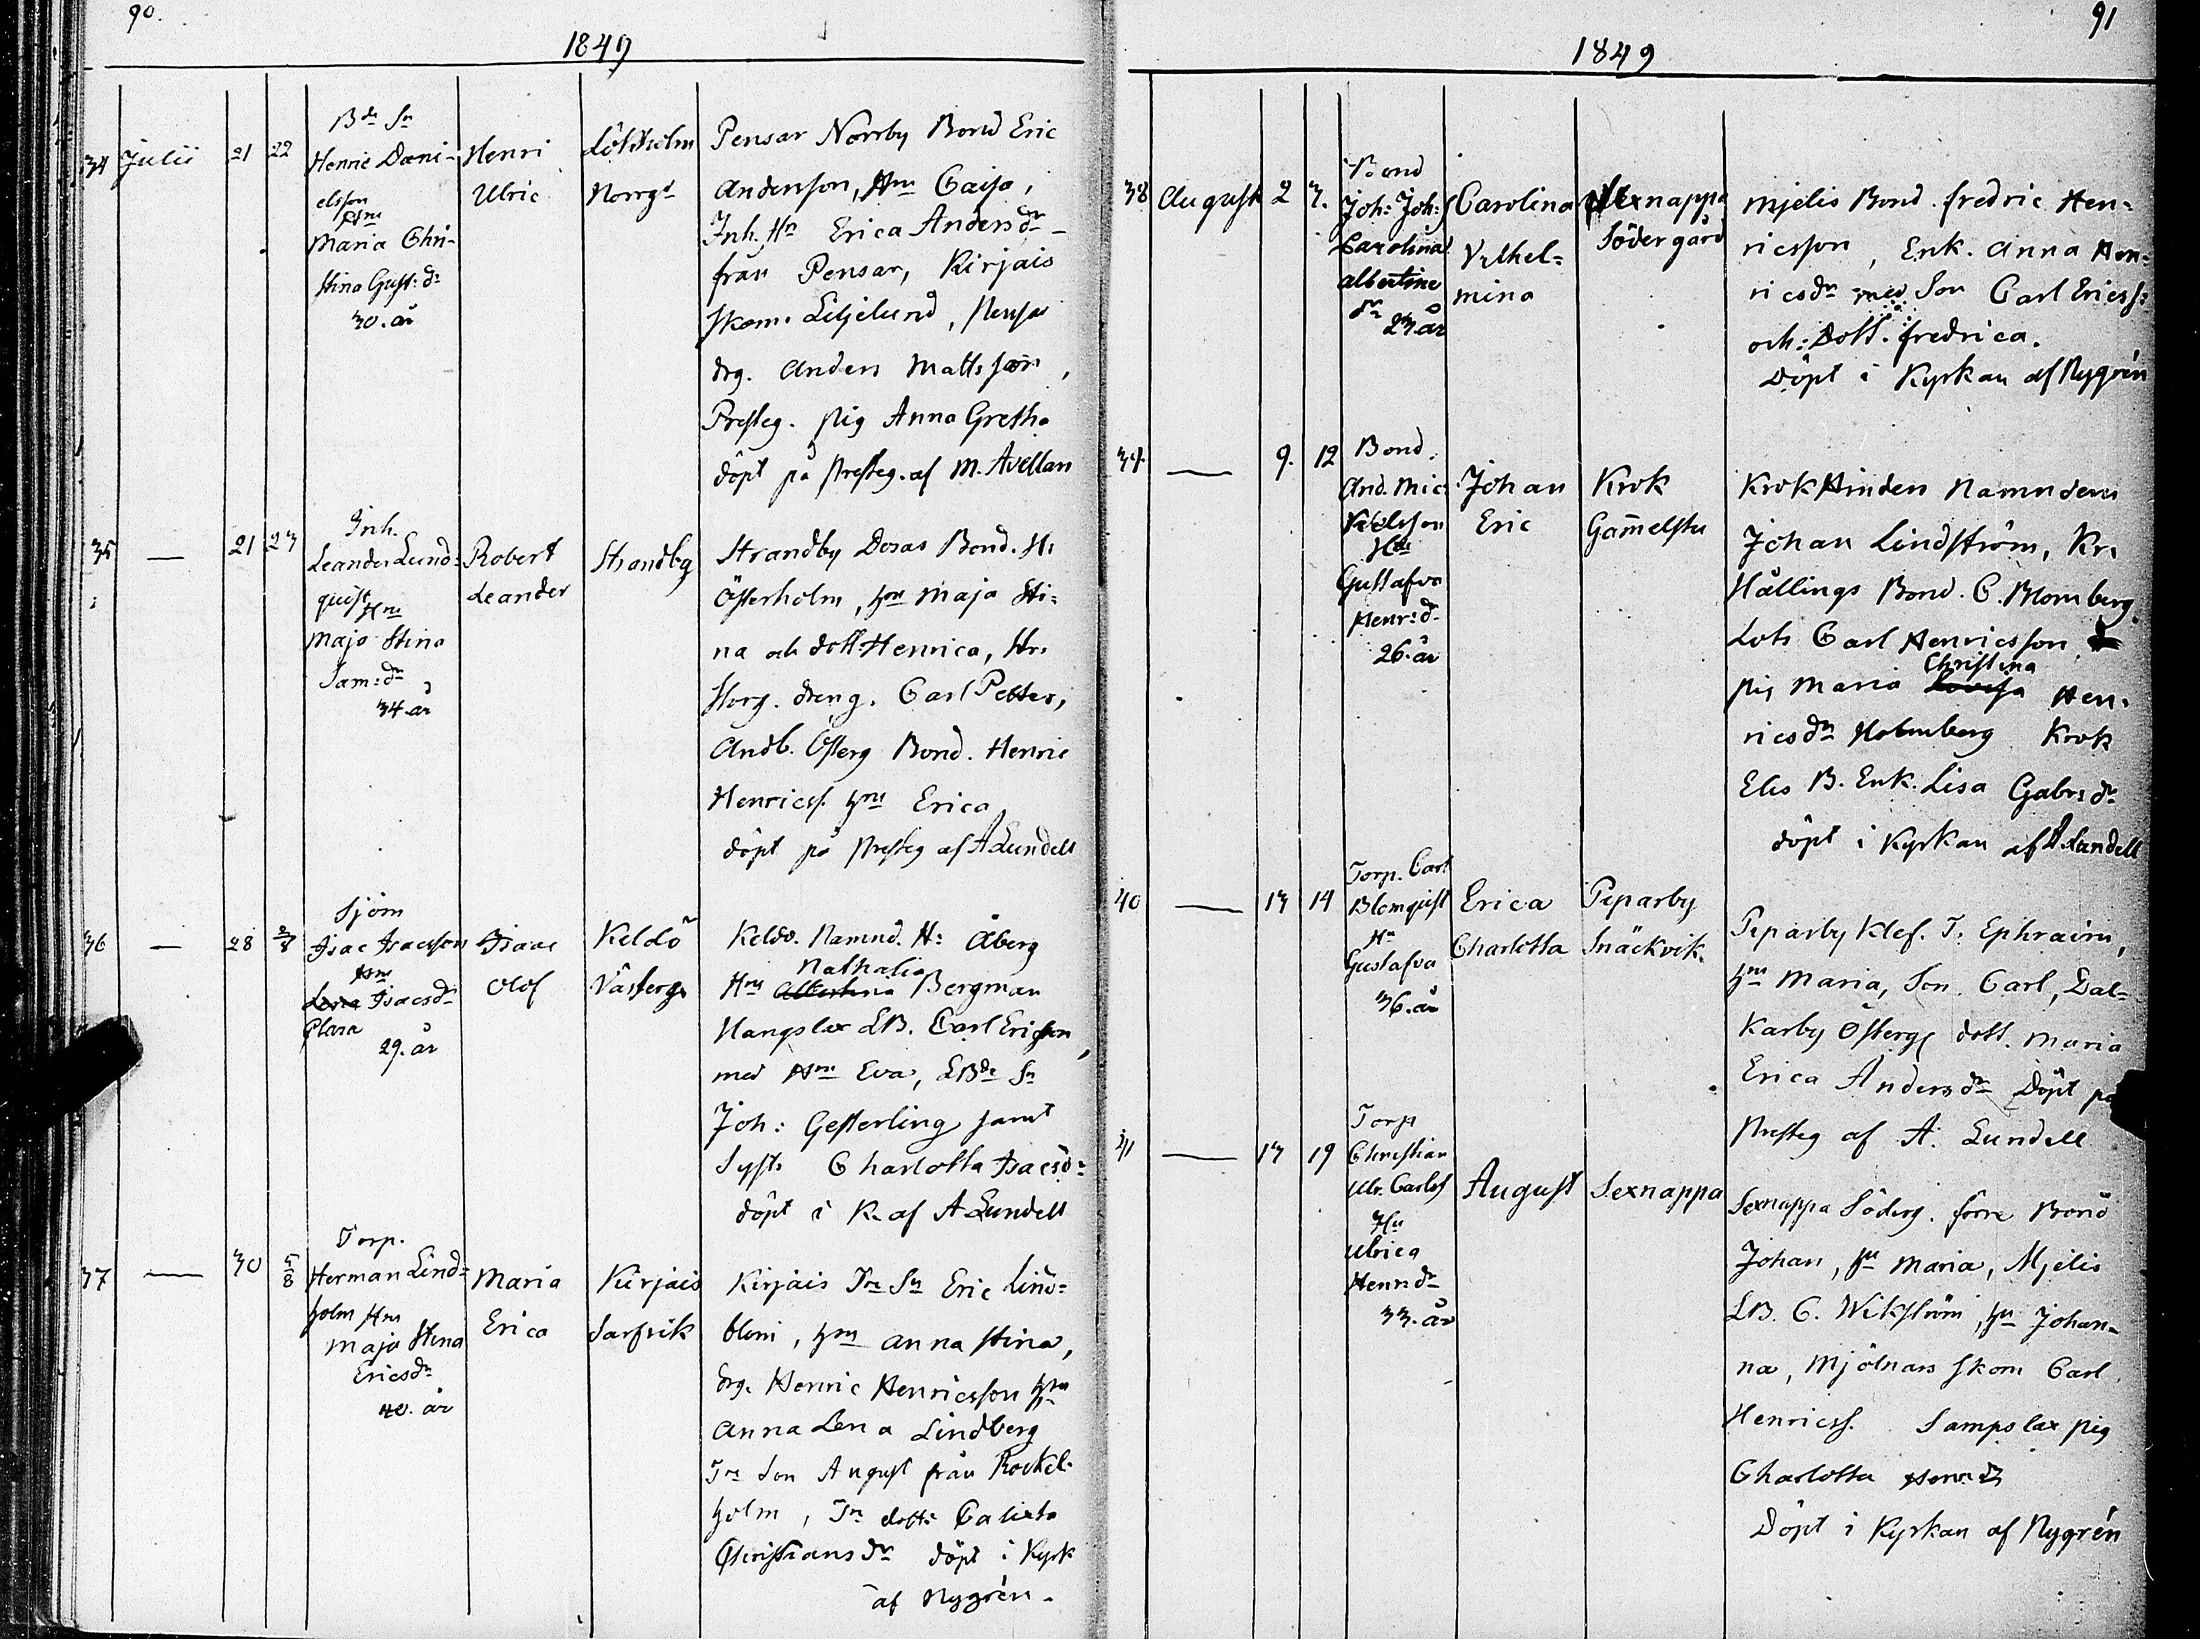 90.
1849
34 Julii 21 22
Bds Sn
Henric Dani-
elsson
Hm
Maria Chri-
stina Gust:dr
30. år
Henri
Ulric
Löfholm
Norrgd
Pensar Norrby Bond Eric
Andersson, Hm Caisa,
Inh. Hn Erica Andersdr
från Pensar, Kirjais
skom. Liljelund,
drg. Anders Mattsson,
Presteg. pig Anna Gretha
döpt på presteg. af M. Avellan
35 — 21 23
Inh.
Leander Lund-
quist
Hm
Maja Stina
Sam:dr
34 år
Robert
Leander
Strandby
Strandby Doras Bond. H:
Österholm, hm Maja Sti-
na och dott. Henrica, Hr.
Storg. dreng. Carl Petter,
Andb. Österg Bond. Henric
Henricss. hm Erica
döpt på presteg af A Lundell
36 — 28 2/8
Sjöm
Isac Isacsson
Hm
Lena Isacsdr
Clara
29. år
Isaac
Olof
Keldö
Västerg
Keldö. Namnd. H: Åberg
Nathalia
Hm Albertina Bergman
Hangslax LB. Carl Ericsson,
med Hm Eva, LBds Sn
Joh: Gesterling samt
Syst. Charlotta Isacsd:
döpt i K. af A Lundell
37 — 30 5/8
Torp.
Herman Lind-
holm Hm
Maja Stina
Ericsdr
40. år
Maria
Erica
Kirjais
Sarfvik
Kirjais Trs Sn Eric Lind-
blom, hm Anna Stina,
drg. Henric Henricsson hm
Anna Lena Lindberg
Trs Son August från Rockel-
holm, Trs dott:
Christiansdr döpt i Kyrk
af Nygrén.
91
1849
38 August 2 3.
Bond
Joh: Joh:s
Carolina
Albertine
dr
23 år
Carolina
Vilhel-
mina
Sexnappa
Södergård
Mjelis Bond. Fredric Hen-
ricsson, Enk. Anna Hen-
ricsdr med Son Carl Ericss:
och: Dott. Fredrica.
Döpt i Kyrkan af Nygrén
39. — 9. 12
Bond.
And. Mic-
kelsson
Hm
Gustafva
Henr:dr
26. år
Johan
Eric
Krok
Gammelstu
Krok Hinders Namndem
Johan Lindström, Kr.
Hällings Bond. C. Blomberg.
Lots Carl Henricsson
Christina
pig Maria Lovisa Hen-
ricsdr Holmberg Krok
Elis B. Enk. Lisa Gabrsdr
döpt i Kyrkan af A Lundell
40 — 13 14
Torp. Carl
Blomqvist
Hn
Gustafva
36. år
Erica
Charlotta
Piparby
Snäckvik.
Piparby Klef. T. Ephraim,
hm Maria, Son Carl, Dal-
karby Österg dott. Maria
Erica Andersdr Döpt på
presteg af A. Lundell
41 — 13 19
Torp
Christian
Ulr. Carlss
Hu
Ulrica
Henrsdr
33. år
August
Sexnappa
Sexnappa Söderg. förre Bond
Johan, hu Maria, Mjelis
LB. C. Wikström, hu Johan-
na, Mjölnars skom Carl
Henricss. Sampslax pig
Charlotta Henrdr
Döpt i Kyrkan af Nygrén